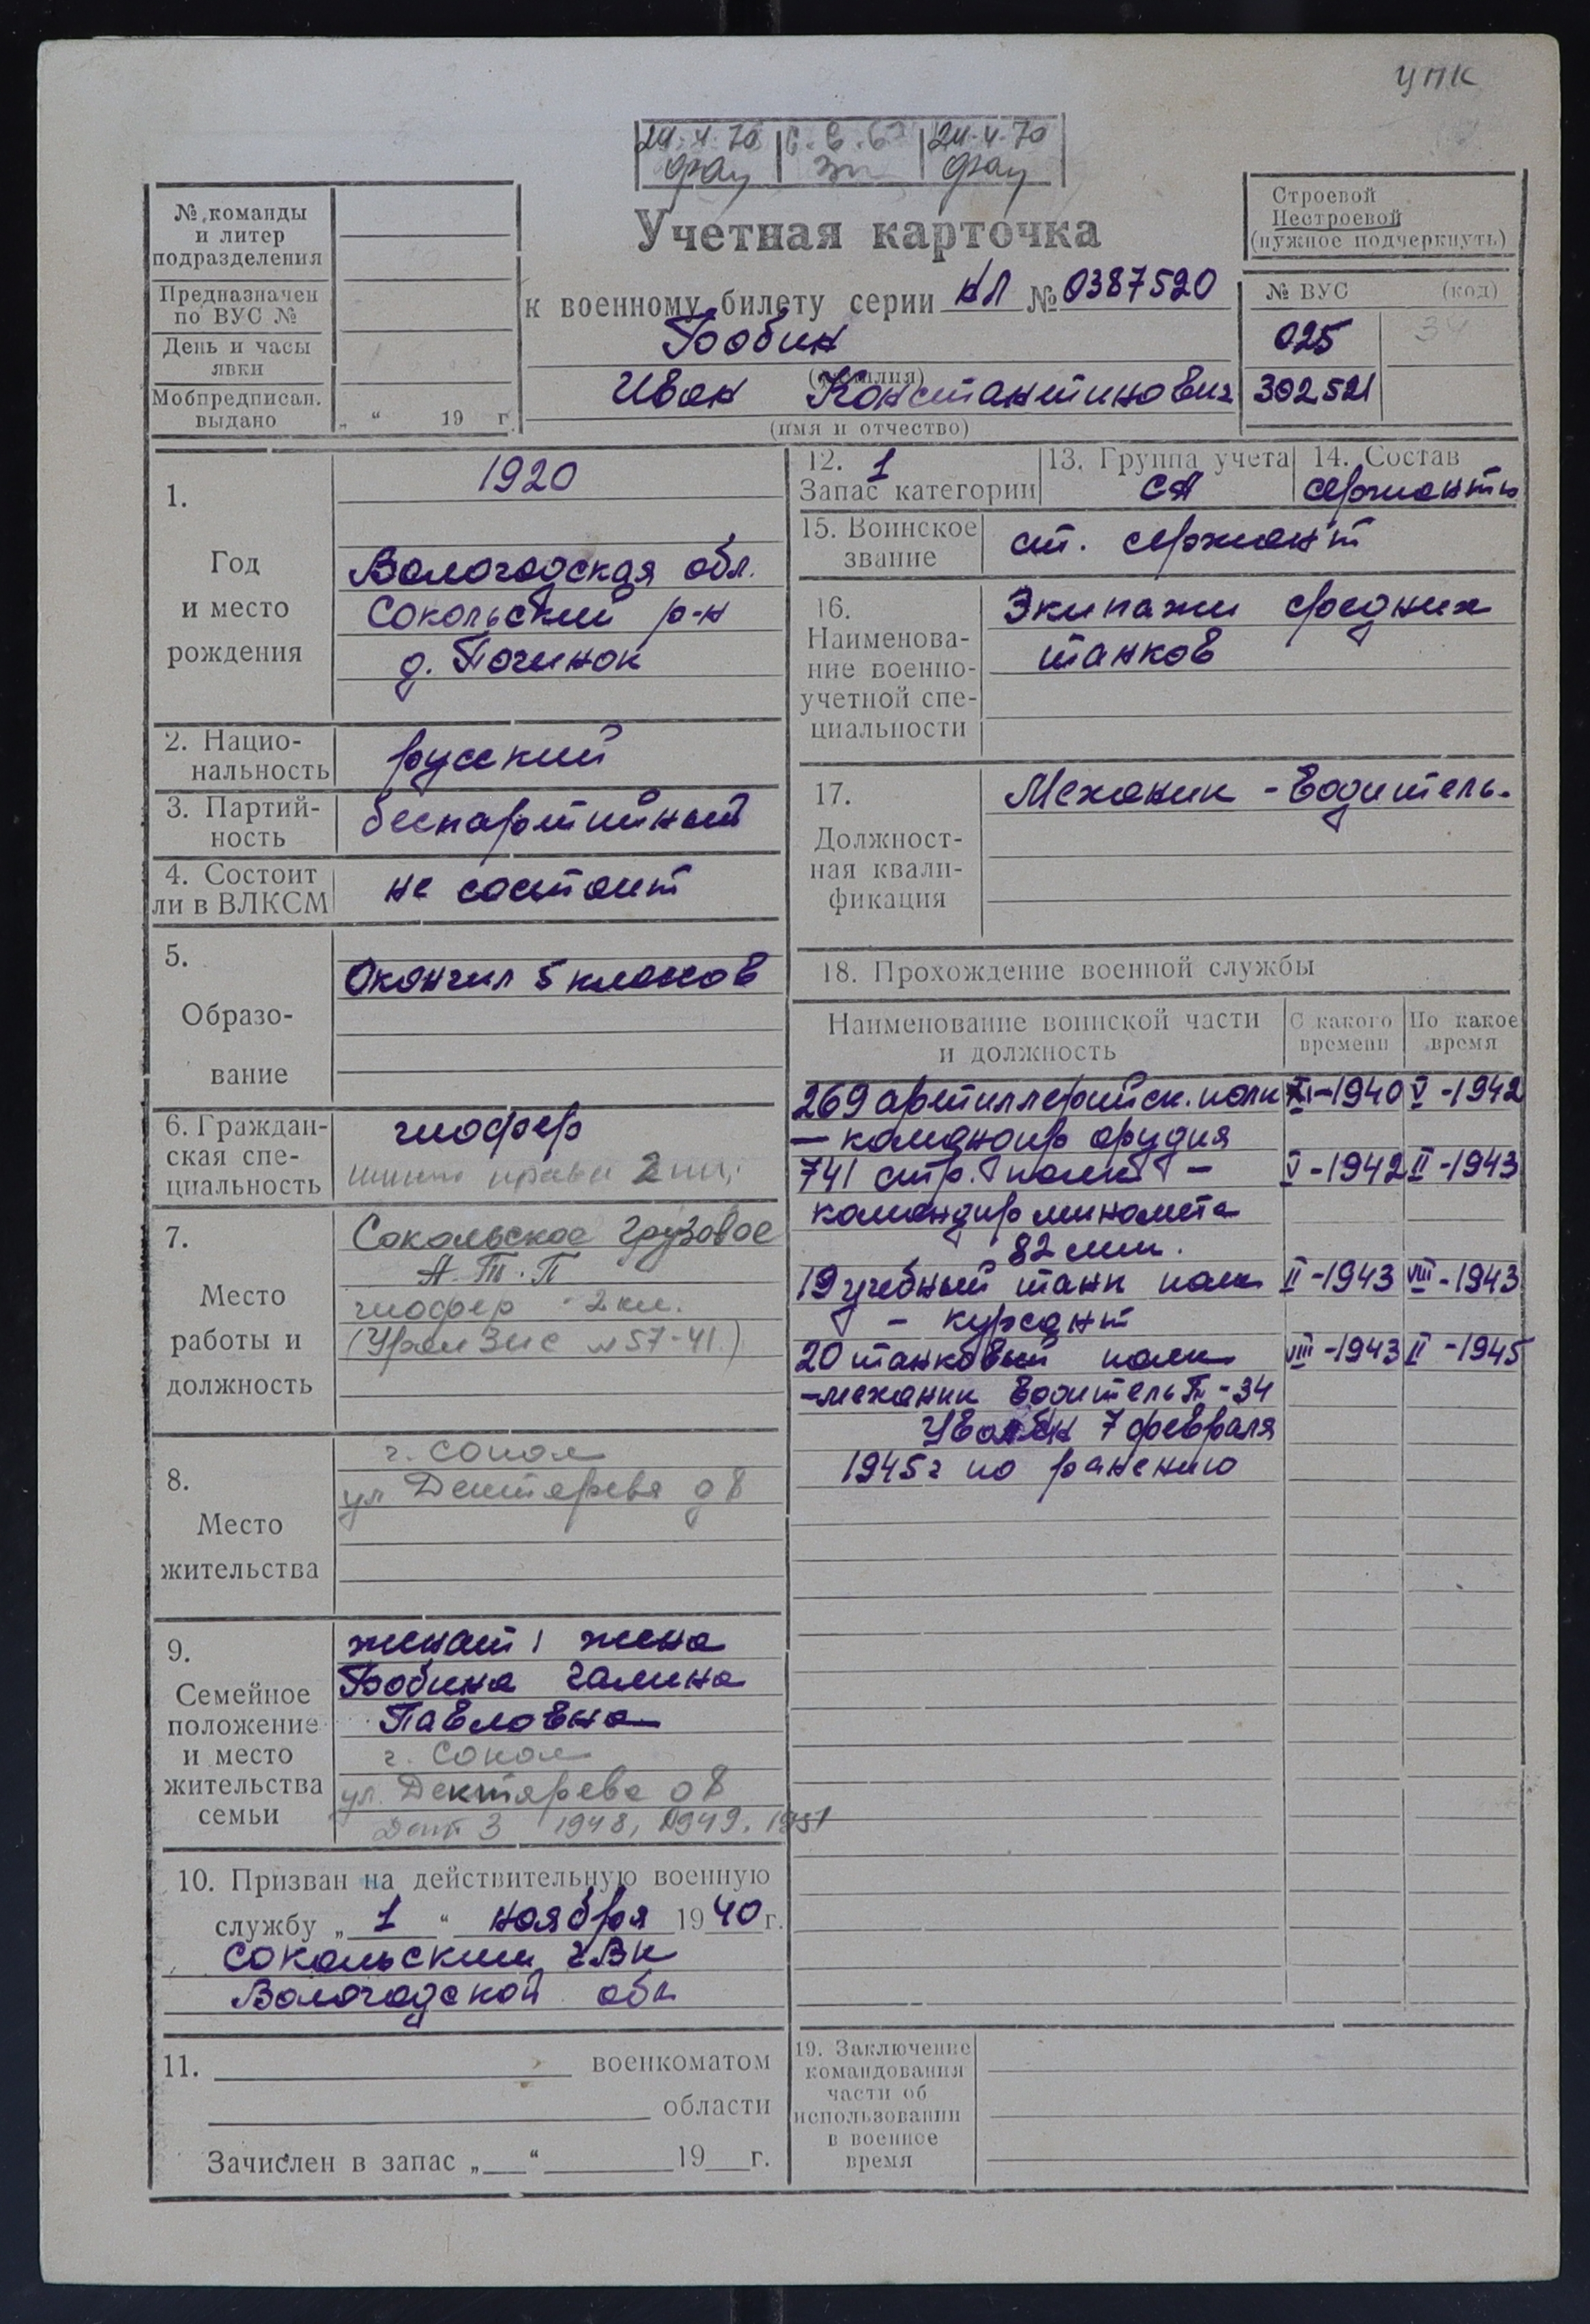 УПК
24.4.70 24.4.70
Учетная карточка
к военному билету серии НЛ № 0387520
Бобин
(фамилия)
Иван Константинович
(имя и отчество)
№ команды
и литер
подразделения
Предназначен
по ВУС №
День и часы
явки
Мобпредписан.
выдано „ “ 19 г.
Строевой
Нестроевой
(нужное подчеркнуть)
№ ВУС (код)
025 34
302521
1.
Год
и место
рождения
1920
Вологодская обл.
Сокольский р-н
д. Починок
2. Нацио-
нальность
русский
3. Партий-
ность
беспартийный
4. Состоит
ли в ВЛКСМ
не состоит
5.
Образо-
вание
Окончил 5 классов
6. Граждан-
ская спе-
циальность
шофер
права 2 кл.
7.
Место
работы и
должность
Сокольское грузовое
А.Т.П
шофер - 2 кл.
(Урал Зис № 57-41)
8.
Место
жительства
г. Сокол
ул Дектярева д 8
9.
Семейное
положение
и место
жительства
семьи
женат, жена
Бобина Галина
Павловна
г. Сокол
ул. Дектярева д 8
Дет 3 1948, 1949, 1951
10. Призван на действительную военную
службу „ 1 “ ноября 1940 г.
Сокольским ГВК
Вологодской обл
11. военкоматом
области
Зачислен в запас „ “ 19 г.
12. 1
Запас категории
13. Группа учета
СА
14. Состав
сержанты
15. Воинское
звание
ст. сержант
16.
Наименова-
ние военно-
учетной спе-
циальности
Экипажи средних
танков
17.
Должност-
ная квали-
фикация
Механик - водитель.
18. Прохождение военной службы
Наименование воинской части
и должность
С какого
времени
По какое
время
269 артиллерийск. полк XI-1940 V-1942
— командир орудия
741 стр. полк — V-1942 II-1943
командир миномета
82 мм.
19 учебный танк полк II-1943 VIII-1943
- курсант
20 танковый полк VIII-1943 II-1945
- механик водитель Т-34
Уволен 7 февраля
1945 г по ранению
19. Заключение
командования
части об
использовании
в военное
время